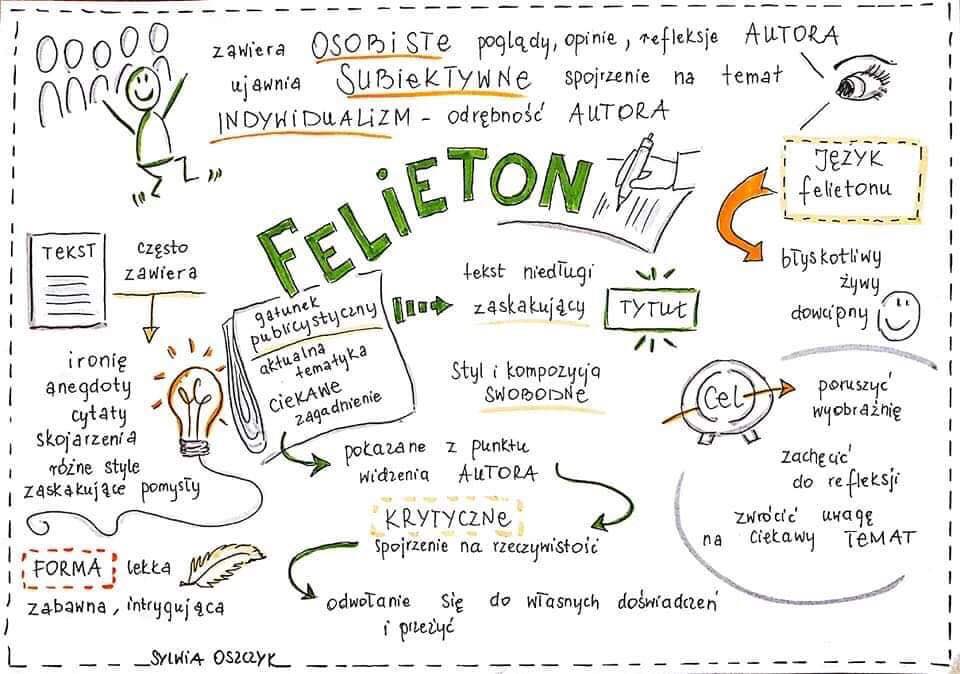 zawiera OSOBISTE poglądy, opinie, refleksje AUTORA
ujawnia SUBIEKTYWNE spojrzenie na temat
INDYWIDUALIZM - odrębność AUTORA
FELIETON
JĘZYK
felietonu
błyskotliwy
żywy
dowcipny
TEKST
często
zawiera
ironię
anegdoty
cytaty
skojarzenia
różne style
zaskakujące pomysły
gatunek
publicystyczny
aktualna
tematyka
CIEKAWE
zagadnienie
tekst niedługi
zaskakujący
TYTUŁ
Styl i kompozycja
SWOBODNE
pokazane z punktu
widzenia AUTORA
KRYTYCZNE
spojrzenie na rzeczywistość
odwołanie się do własnych doświadczeń
i przeżyć
Cel
poruszyć
wyobraźnię
zachęcić
do refleksji
zwrócić uwagę
na ciekawy TEMAT
FORMA lekka
zabawna, intrygująca
SYLWIA OSZCZYK